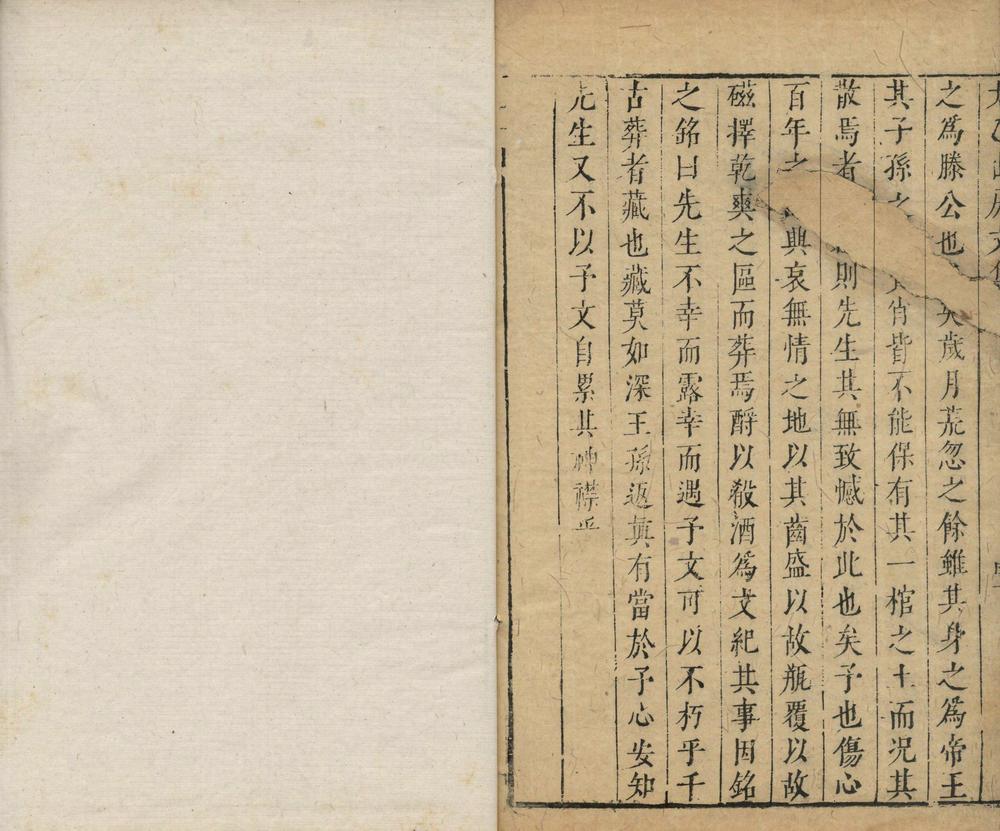 文集
之爲滕公也矣歲月荒忽之餘雖其身之爲帝王
其子孫之肖皆不能保有其一棺之土而况其
散焉者則先生其無致憾於此也矣予也傷心
百年之典哀無情之地以其菑盛以故瓶覆以故
磁擇乾爽之區而葬焉酹以殺酒爲文紀其事因銘
之銘曰先生不幸而露幸而遇予文可以不朽乎千
古葬者藏也藏莫如深王孫返眞有當於予心安知
先生又不以予文自累其神襟乎